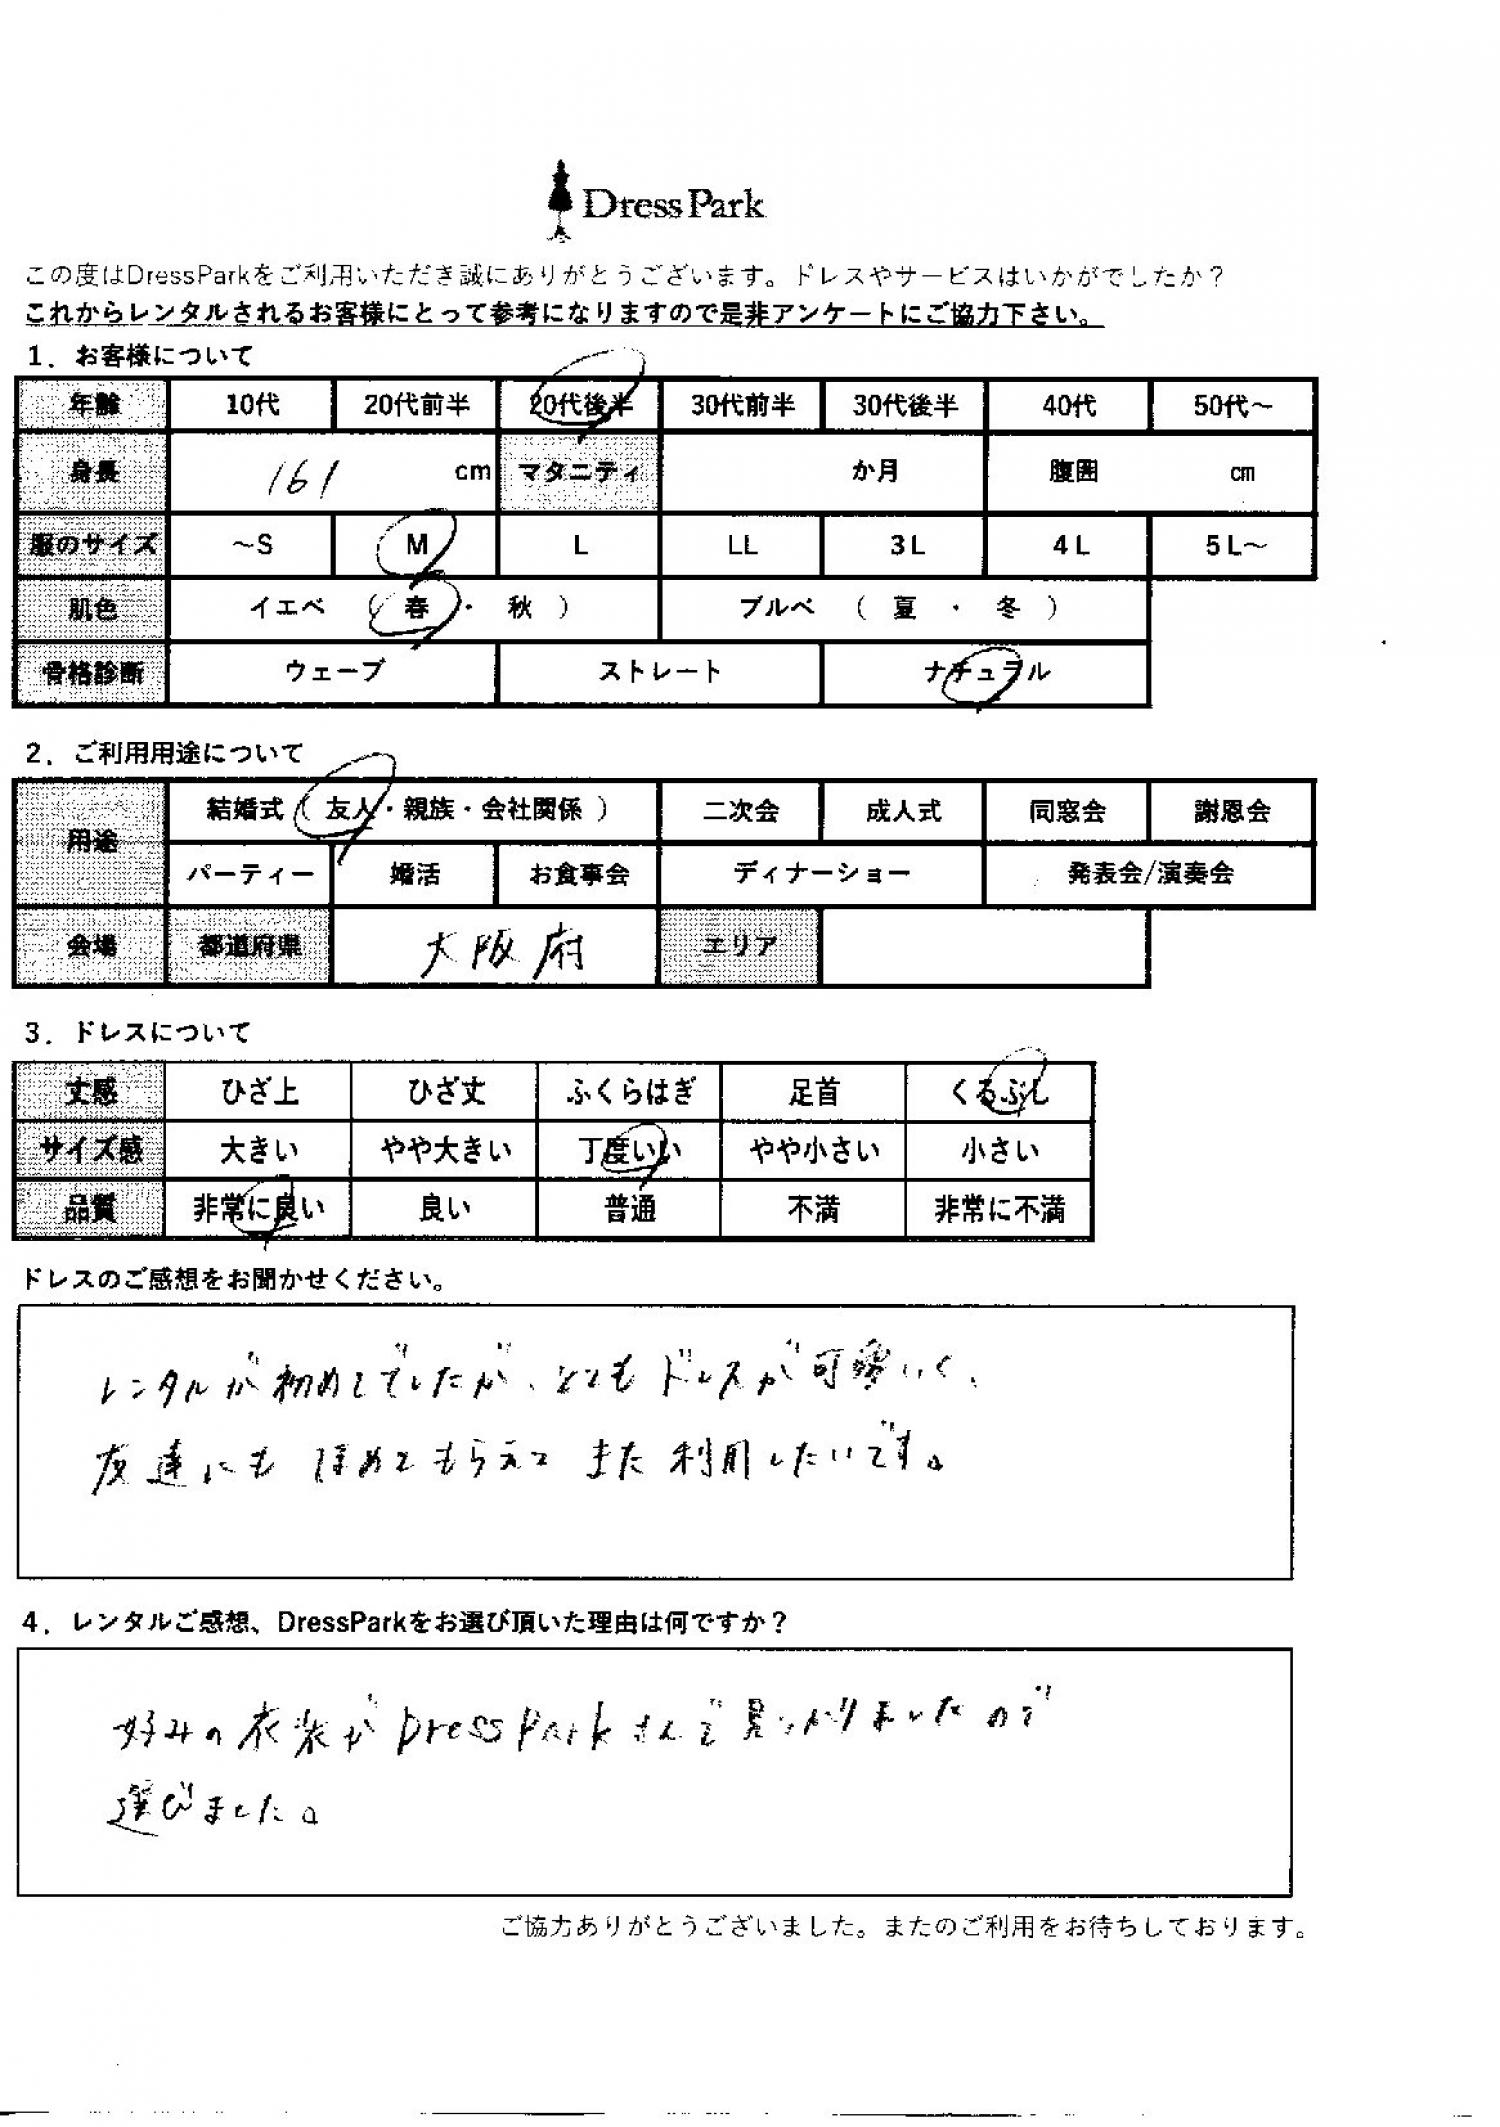 Dress Park
この度はDressParkをご利用いただき誠にありがとうございます。ドレスやサービスはいかがでしたか？
これからレンタルされるお客様にとって参考になりますので是非アンケートにご協力下さい。
1．お客様について
年齢 10代 20代前半 20代後半 30代前半 30代後半 40代 50代～
身長 161 cm マタニティ か月 腹囲 cm
服のサイズ ～S M L LL 3L 4L 5L～
肌色 イエベ （ 春 ・ 秋 ） ブルベ （ 夏 ・ 冬 ）
骨格診断 ウェーブ ストレート ナチュラル
2．ご利用用途について
用途 結婚式（ 友人・親族・会社関係 ） 二次会 成人式 同窓会 謝恩会
パーティー 婚活 お食事会 ディナーショー 発表会/演奏会
会場 都道府県 大阪府 エリア
3．ドレスについて
丈感 ひざ上 ひざ丈 ふくらはぎ 足首 くるぶし
サイズ感 大きい やや大きい 丁度いい やや小さい 小さい
品質 非常に良い 良い 普通 不満 非常に不満
ドレスのご感想をお聞かせください。
レンタルが初めてでしたが、とてもドレスが可愛いく、
友達にもほめてもらえてまた利用したいです。
4．レンタルご感想、DressParkをお選び頂いた理由は何ですか？
好みの衣装がDressParkさんで見つかりましたので
選びました。
ご協力ありがとうございました。またのご利用をお待ちしております。